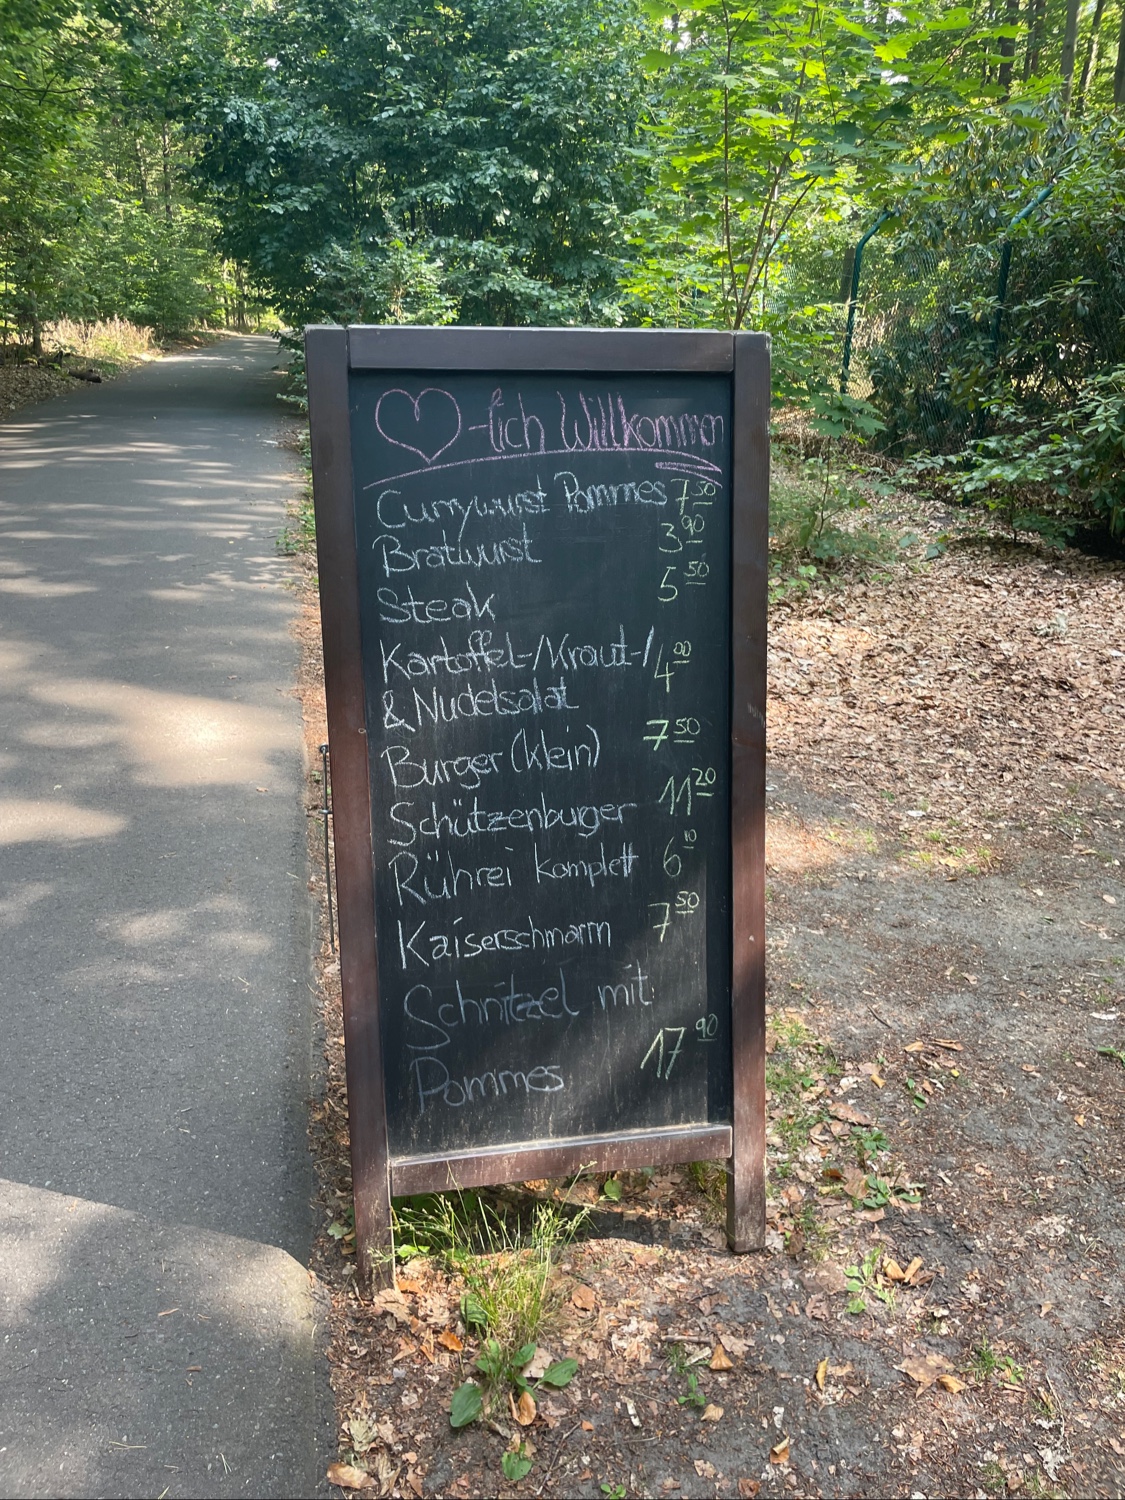 ♡-lich Willkommen
Currywurst Pommes 7 50
Bratwurst 3 90
Steak 5 50
Kartoffel-/Kraut-/ 4 00
& Nudelsalat
Burger (klein) 7 50
Schützenburger 11 20
Rührei komplett 6 10
Kaiserschmarrn 7 50
Schnitzel mit
Pommes 17 90